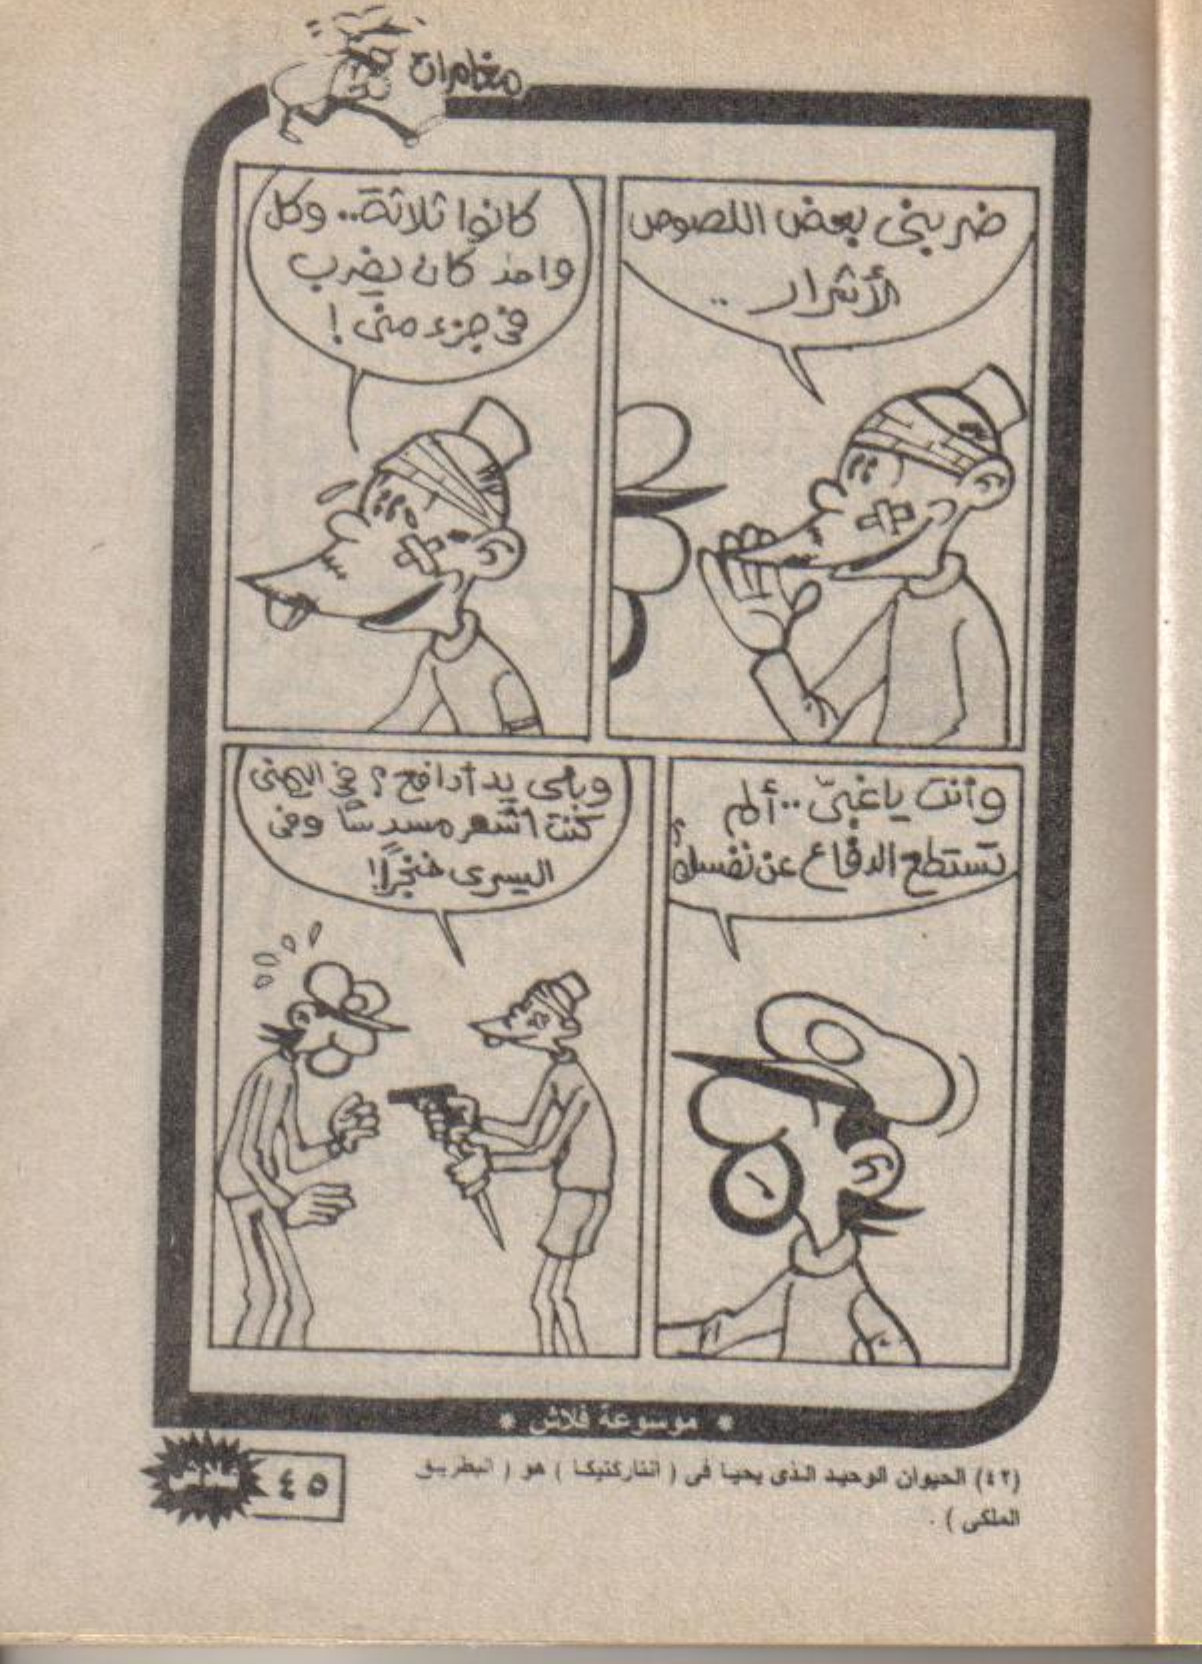 مغامرات
ضربنى بعض اللصوص
الأشرار ..
كانوا ثلاثة.. وكل
واحد كان يضرب
فى جزء منى !
وأنت ياغبىّ .. ألم
تستطع الدفاع عن نفسك ؟
وبأى يد أدافع ؟ فى اليمنى
كنت أشهر مسدسًا وفى
اليسرى خنجرًا!
* موسوعة فلاش *
(٤٢) الحيوان الوحيد الذى يحيا فى ( انتاركتيكا ) هو ( البطريق
الملكى ) .
٤٥